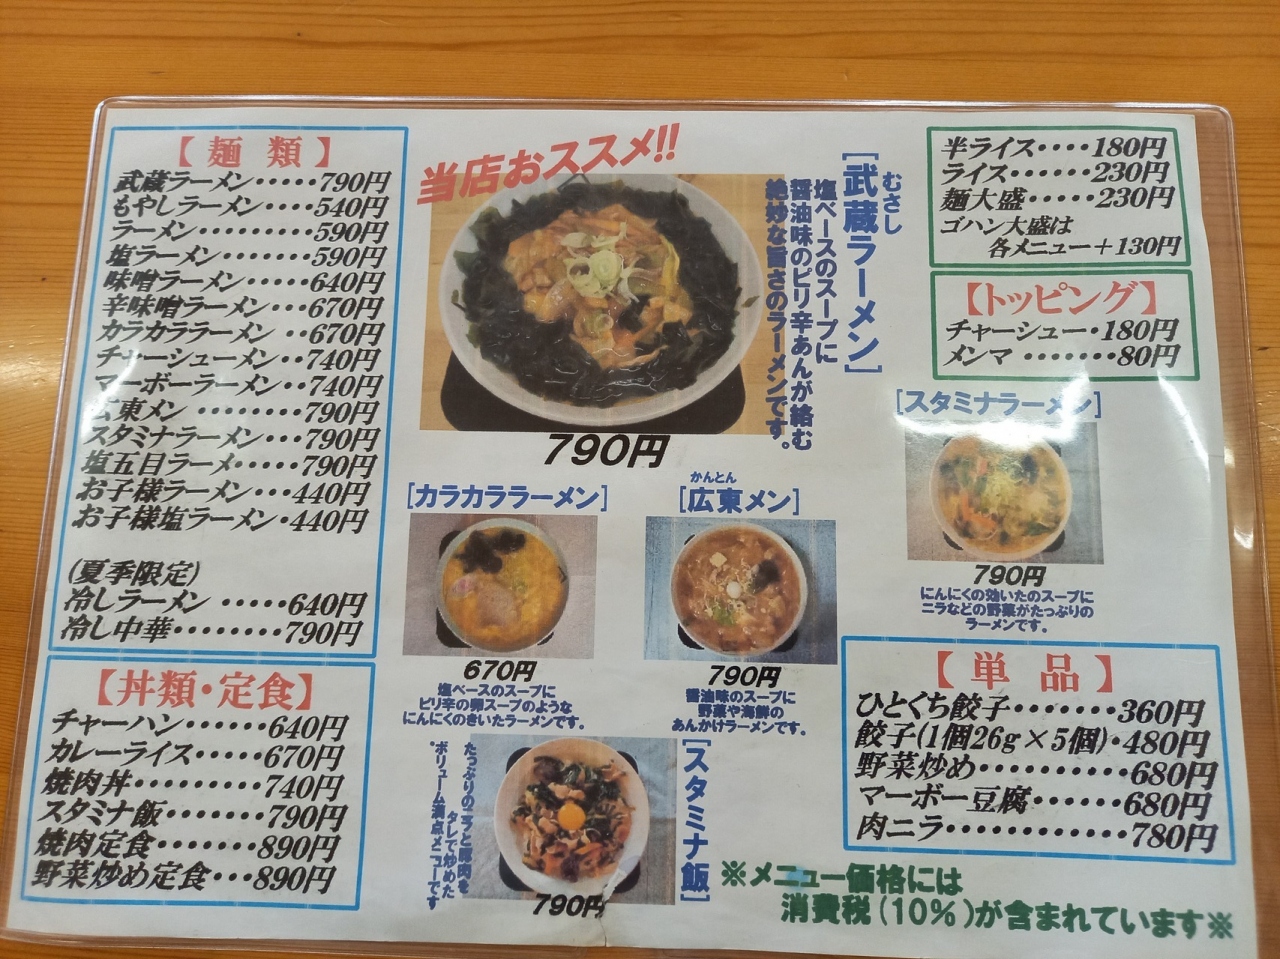 【 麺 類 】
武蔵ラーメン・・・・・790円
もやしラーメン・・・・540円
ラーメン・・・・・・・・・590円
塩ラーメン・・・・・・・590円
味噌ラーメン・・・・・640円
辛味噌ラーメン・・・・670円
カラカララーメン ・・670円
チャーシューメン・・・740円
マーボーラーメン・・740円
広東メン ・・・・・・・・790円
スタミナラーメン・・・790円
塩五目ラーメ・・・・・790円
お子様ラーメン・・・440円
お子様塩ラーメン・440円
(夏季限定)
冷しラーメン ・・・・・640円
冷し中華・・・・・・・・790円
【丼類・定食】
チャーハン・・・・・・640円
カレーライス・・・・・670円
焼肉丼・・・・・・・・・740円
スタミナ飯・・・・・・・790円
焼肉定食・・・・・・・890円
野菜炒め定食・・・890円
当店おススメ!!
むさし
[武蔵ラーメン]
塩ベースのスープに
醤油味のピリ辛あんが絡む
絶妙な旨さのラーメンです。
790円
[カラカララーメン]
670円
塩ベースのスープに
ピリ辛の卵スープのような
にんにくのきいたラーメンです。
かんとん
[広東メン]
790円
醤油味のスープに
野菜や海鮮の
あんかけラーメンです。
[スタミナラーメン]
790円
にんにくの効いたのスープに
ニラなどの野菜がたっぷりの
ラーメンです。
[スタミナ飯]
たっぷりのニラと豚肉を
タレで炒めた
ボリューム満点メニューです。
790円
半ライス・・・・180円
ライス・・・・・・230円
麺大盛・・・・・230円
ゴハン大盛は
各メニュー＋130円
【トッピング】
チャーシュー・180円
メンマ ・・・・・・・80円
【 単 品 】
ひとくち餃子・・・・・・・360円
餃子(1個26g×5個)・480円
野菜炒め・・・・・・・・・・680円
マーボー豆腐・・・・・・680円
肉ニラ・・・・・・・・・・・・780円
※メニュー価格には
消費税(10%)が含まれています※